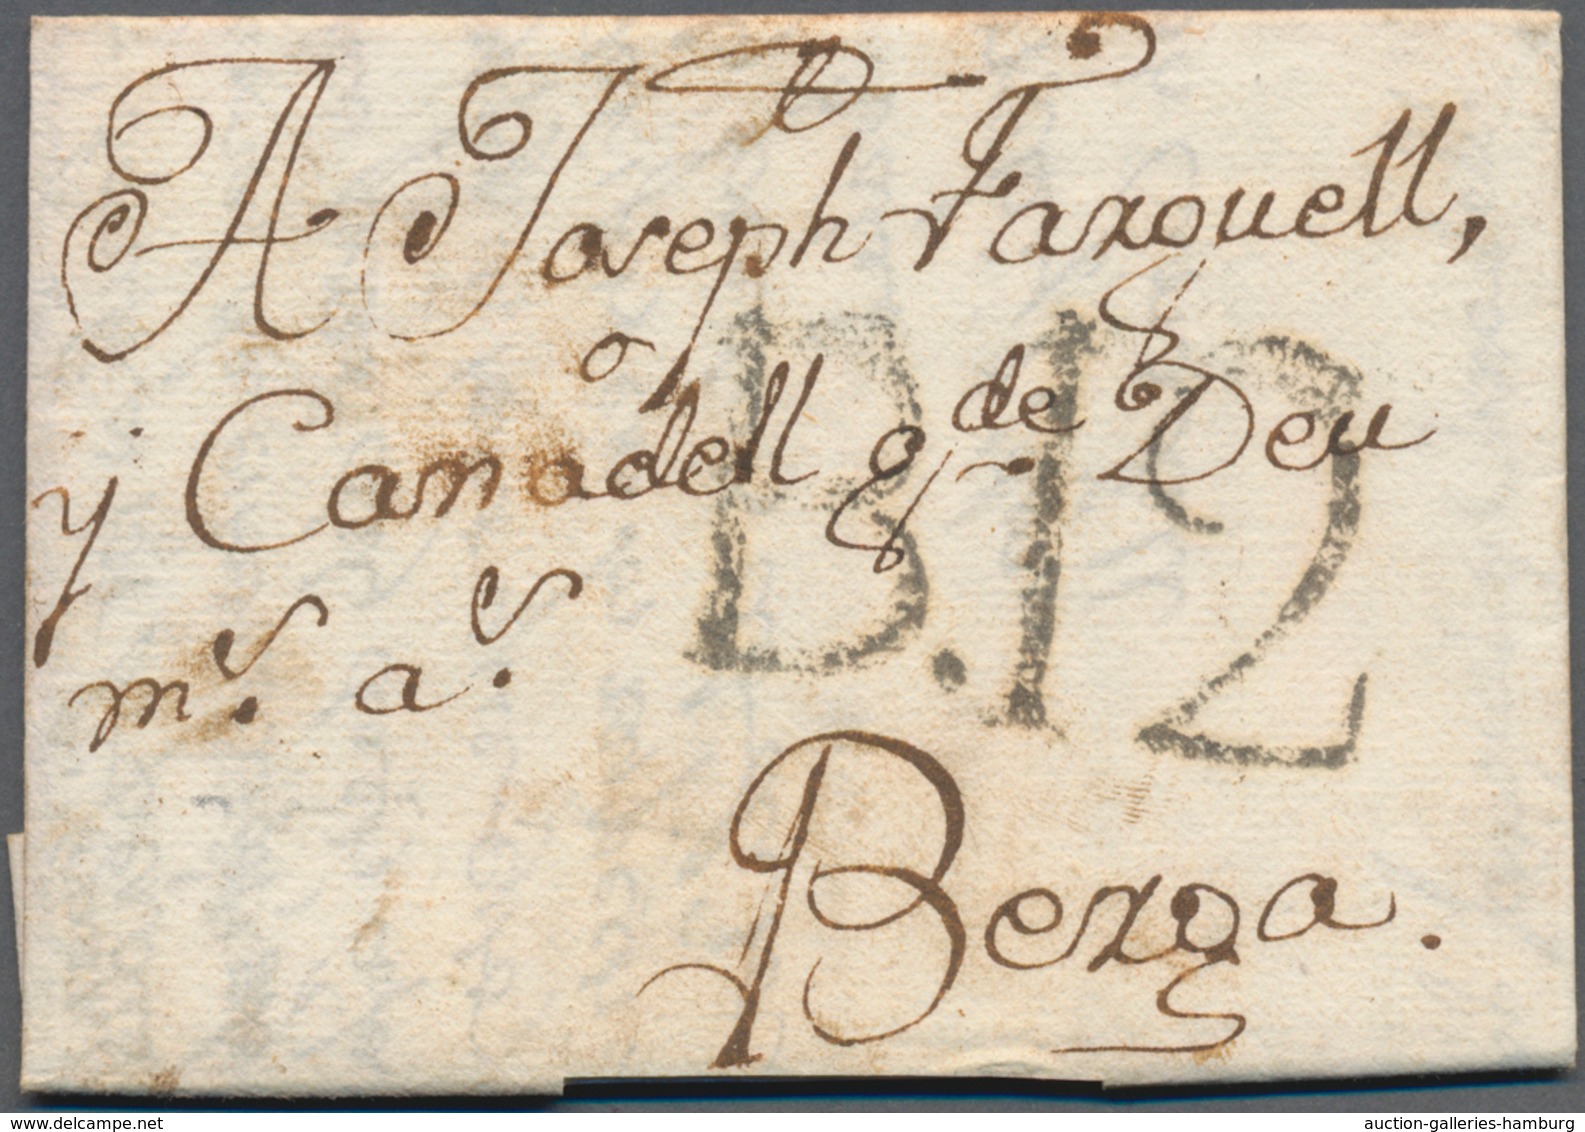 A Joseph Farguell,
y Canadell g.de Deu
m.s a.s
B.12
Berga.
www.delcampe.net
auction-galleries-hamburg